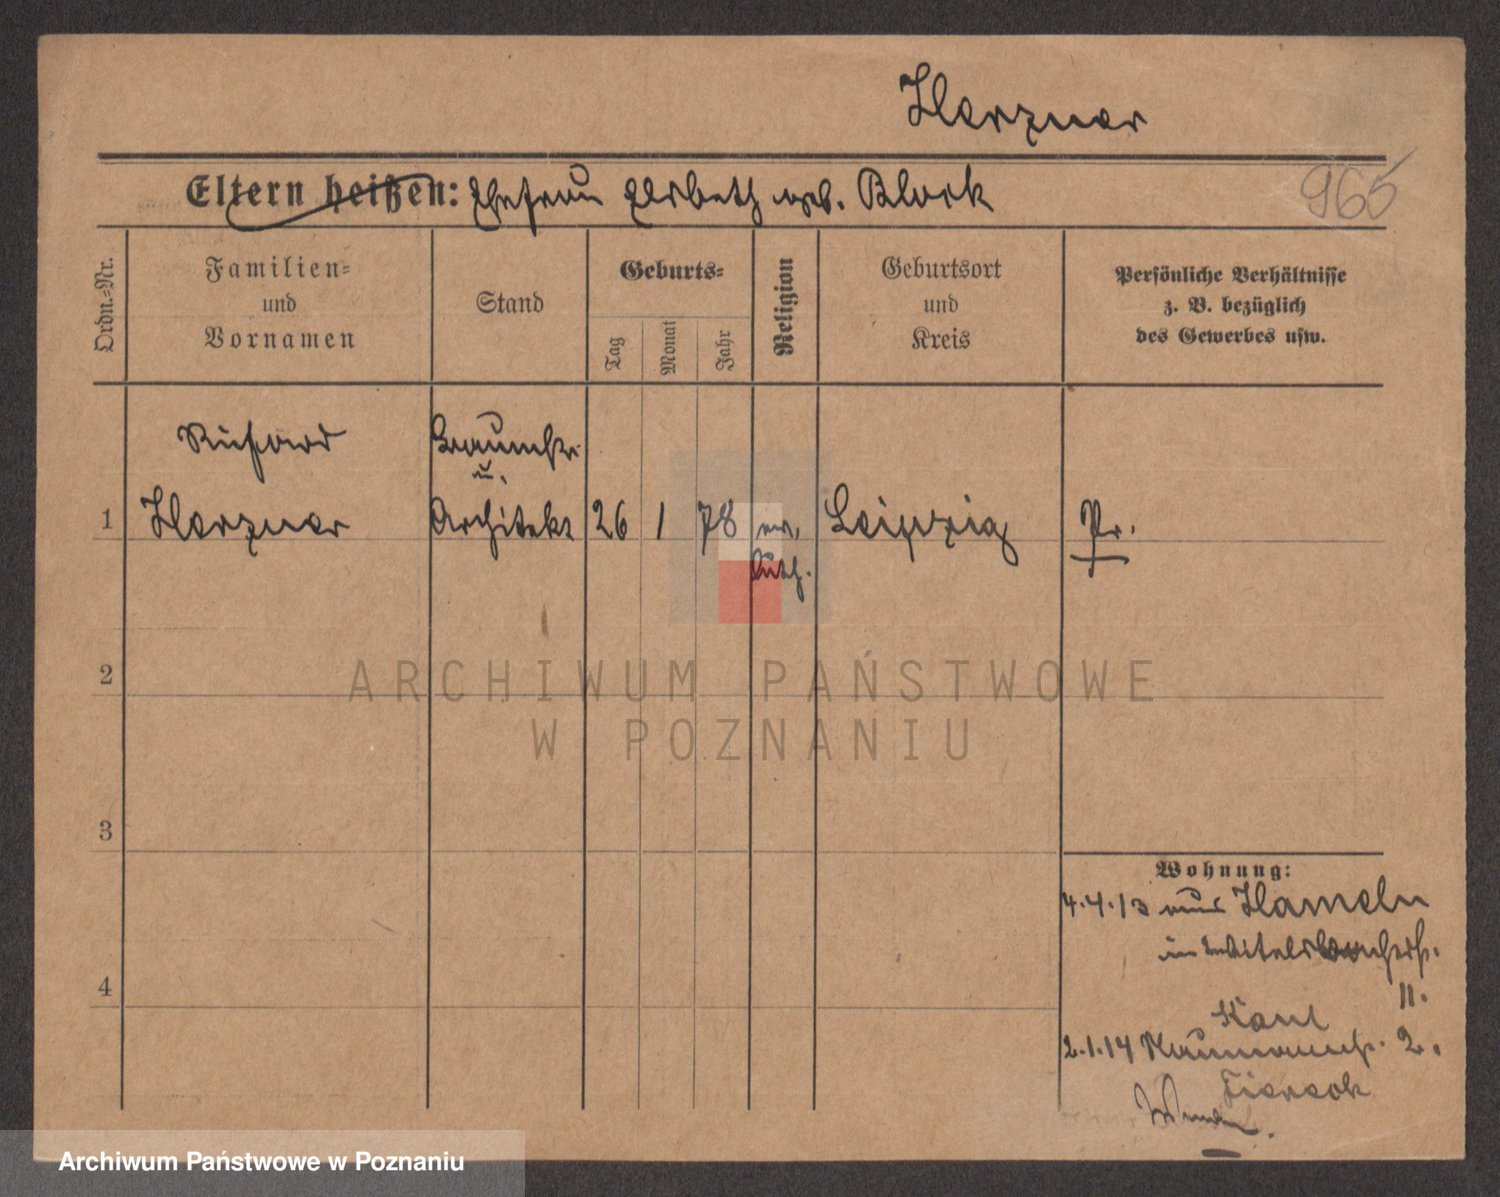 Herzner
Eltern heißen: Ehefrau Elsbeth geb. Block
965
Ordn.=Nr.
Familien=
und
Vornamen
Stand
Geburts=
Tag
Monat
Jahr
Religion
Geburtsort
und
Kreis
Persönliche Verhältnisse
z. B. bezüglich
des Gewerbes usw.
Richard
Baumstr.
u.
1 Herzner Architekt 26 1 78 ev. Leipzig Pr.
luth.
2
3
4
Wohnung:
4.4.13 aus Hameln
11.
Kant
2.1.14 Naumannstr. 2.
ARCHIWUM PAŃSTWOWE
W POZNANIU
Archiwum Państwowe w Poznaniu